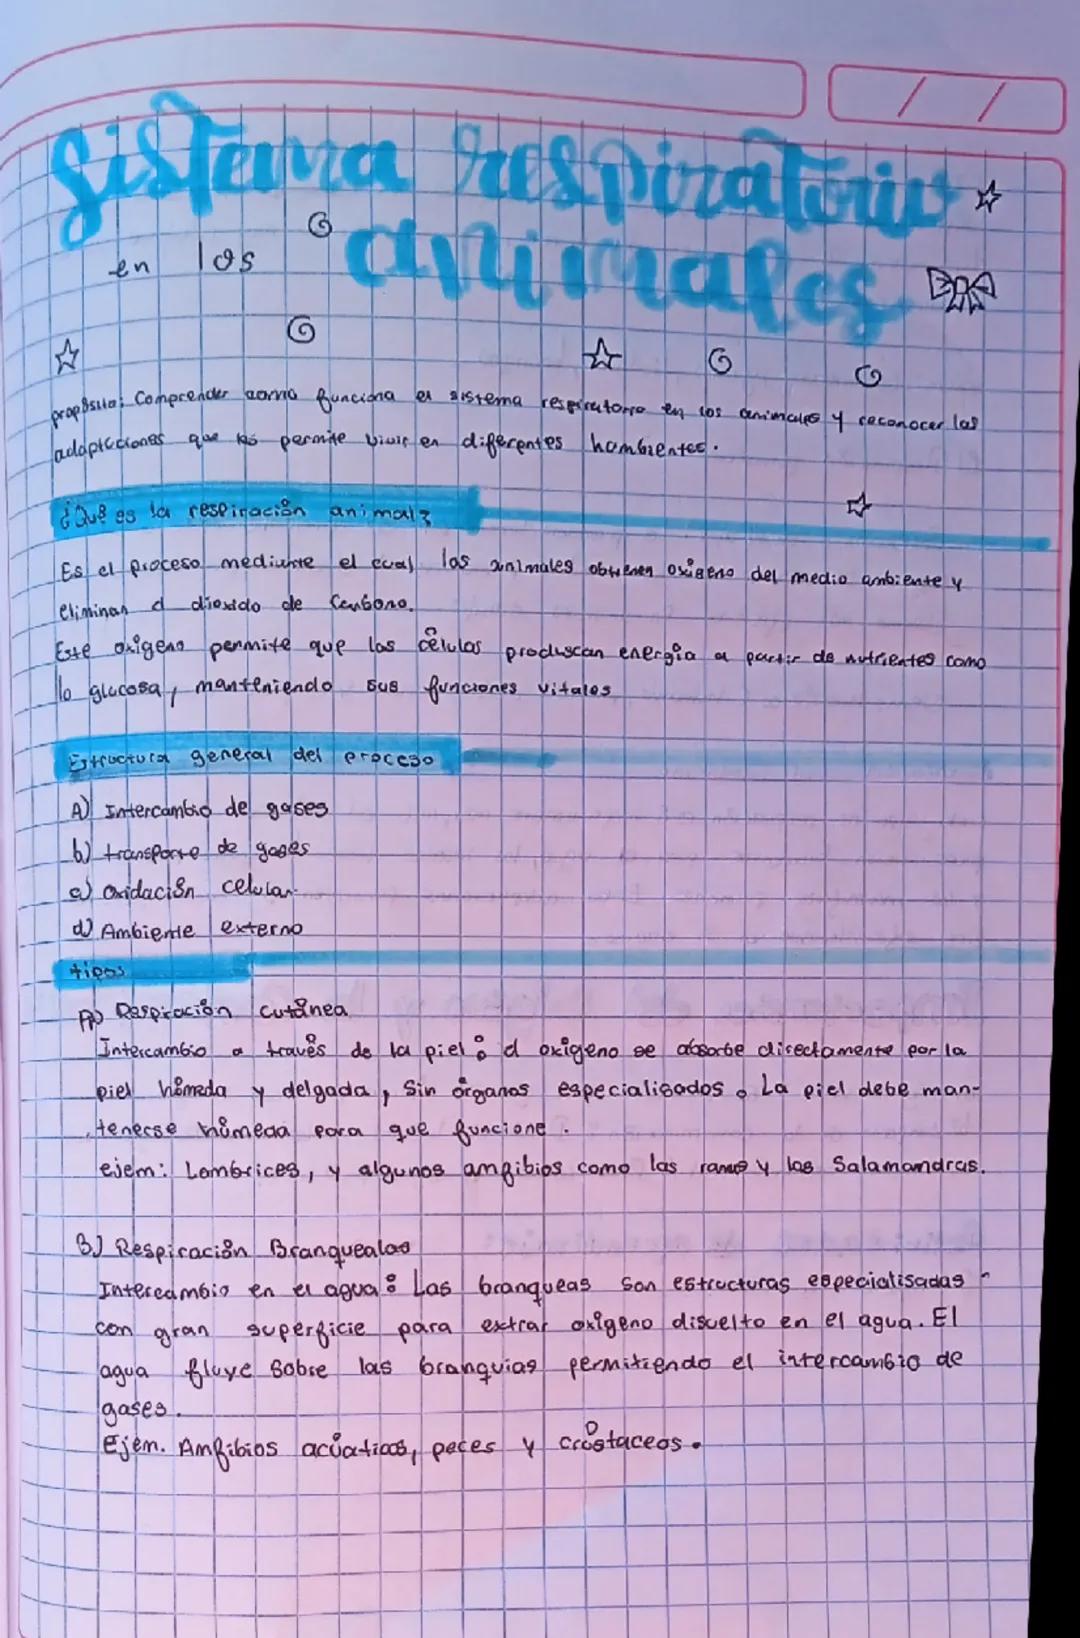 Sistema respiratorio
en los animales
propósito: Comprender como funciona el sistema respiratorio en los animales y reconocer las
adaptaciones que les permite vivir en diferentes hambientes.
¿Qué es la respiración animal?
Es el proceso mediante el cual los animales obtienen oxigeno del medio ambiente y
eliminan el dioxido de Carbono.
Este oxígeno permite que las células produscan energía a partir de nutrientes como
la glucosa, manteniendo sus funciones vitales
Estructura general del proceso
A) Intercambio de gases
b) transporte de gases
c) oxidación celular.
d) Ambiente externo
tipos
A) Respiración cutánea
Intercambio a través de la piel: el oxígeno se absorbe directamente por la
piel húmeda y delgada, Sin órganos especialisados. La piel debe man-
tenerse húmeda para que funcione.
ejem: Lombrices, y algunos amfibios como las ranas y las Salamandras.
B) Respiración Branquealas
Intercambio en el agua: Las branqueas son estructuras especialisadas
con gran superficie para extrar oxígeno disuelto en el agua. El
agua fluye sobre las branquias permitiendo el intercambio de
gases.
Ejem. Amfibios acúaticos, peces y crústaceos.